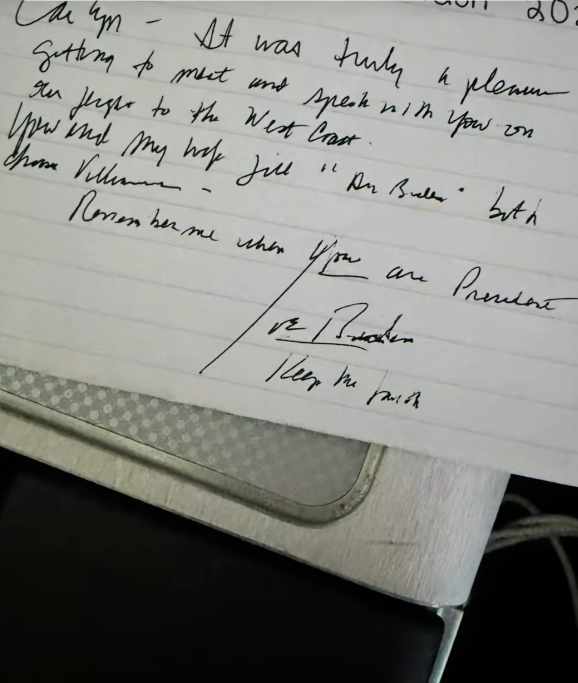 It was truly a pleasure
getting to meet and speak with you on
our flight to the West Coast.
You and my wife Jill "Dr Biden" both
chose Villanova -
Remember me when you are President
Keep the faith